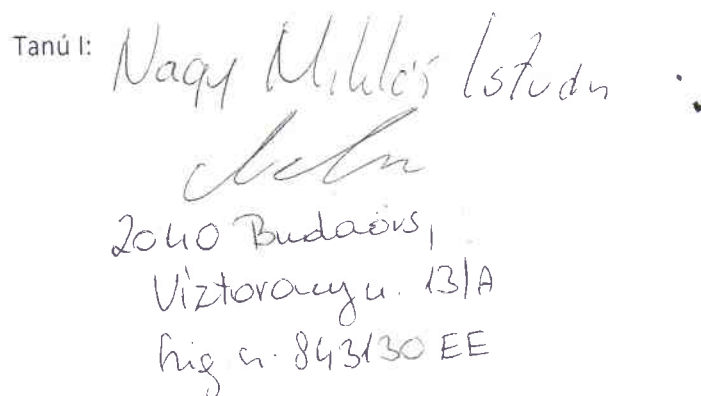 Tanú I: Nagy Miklós István
2040 Budaörs,
Víztorony u. 13/A
szig sz. 843130 EE